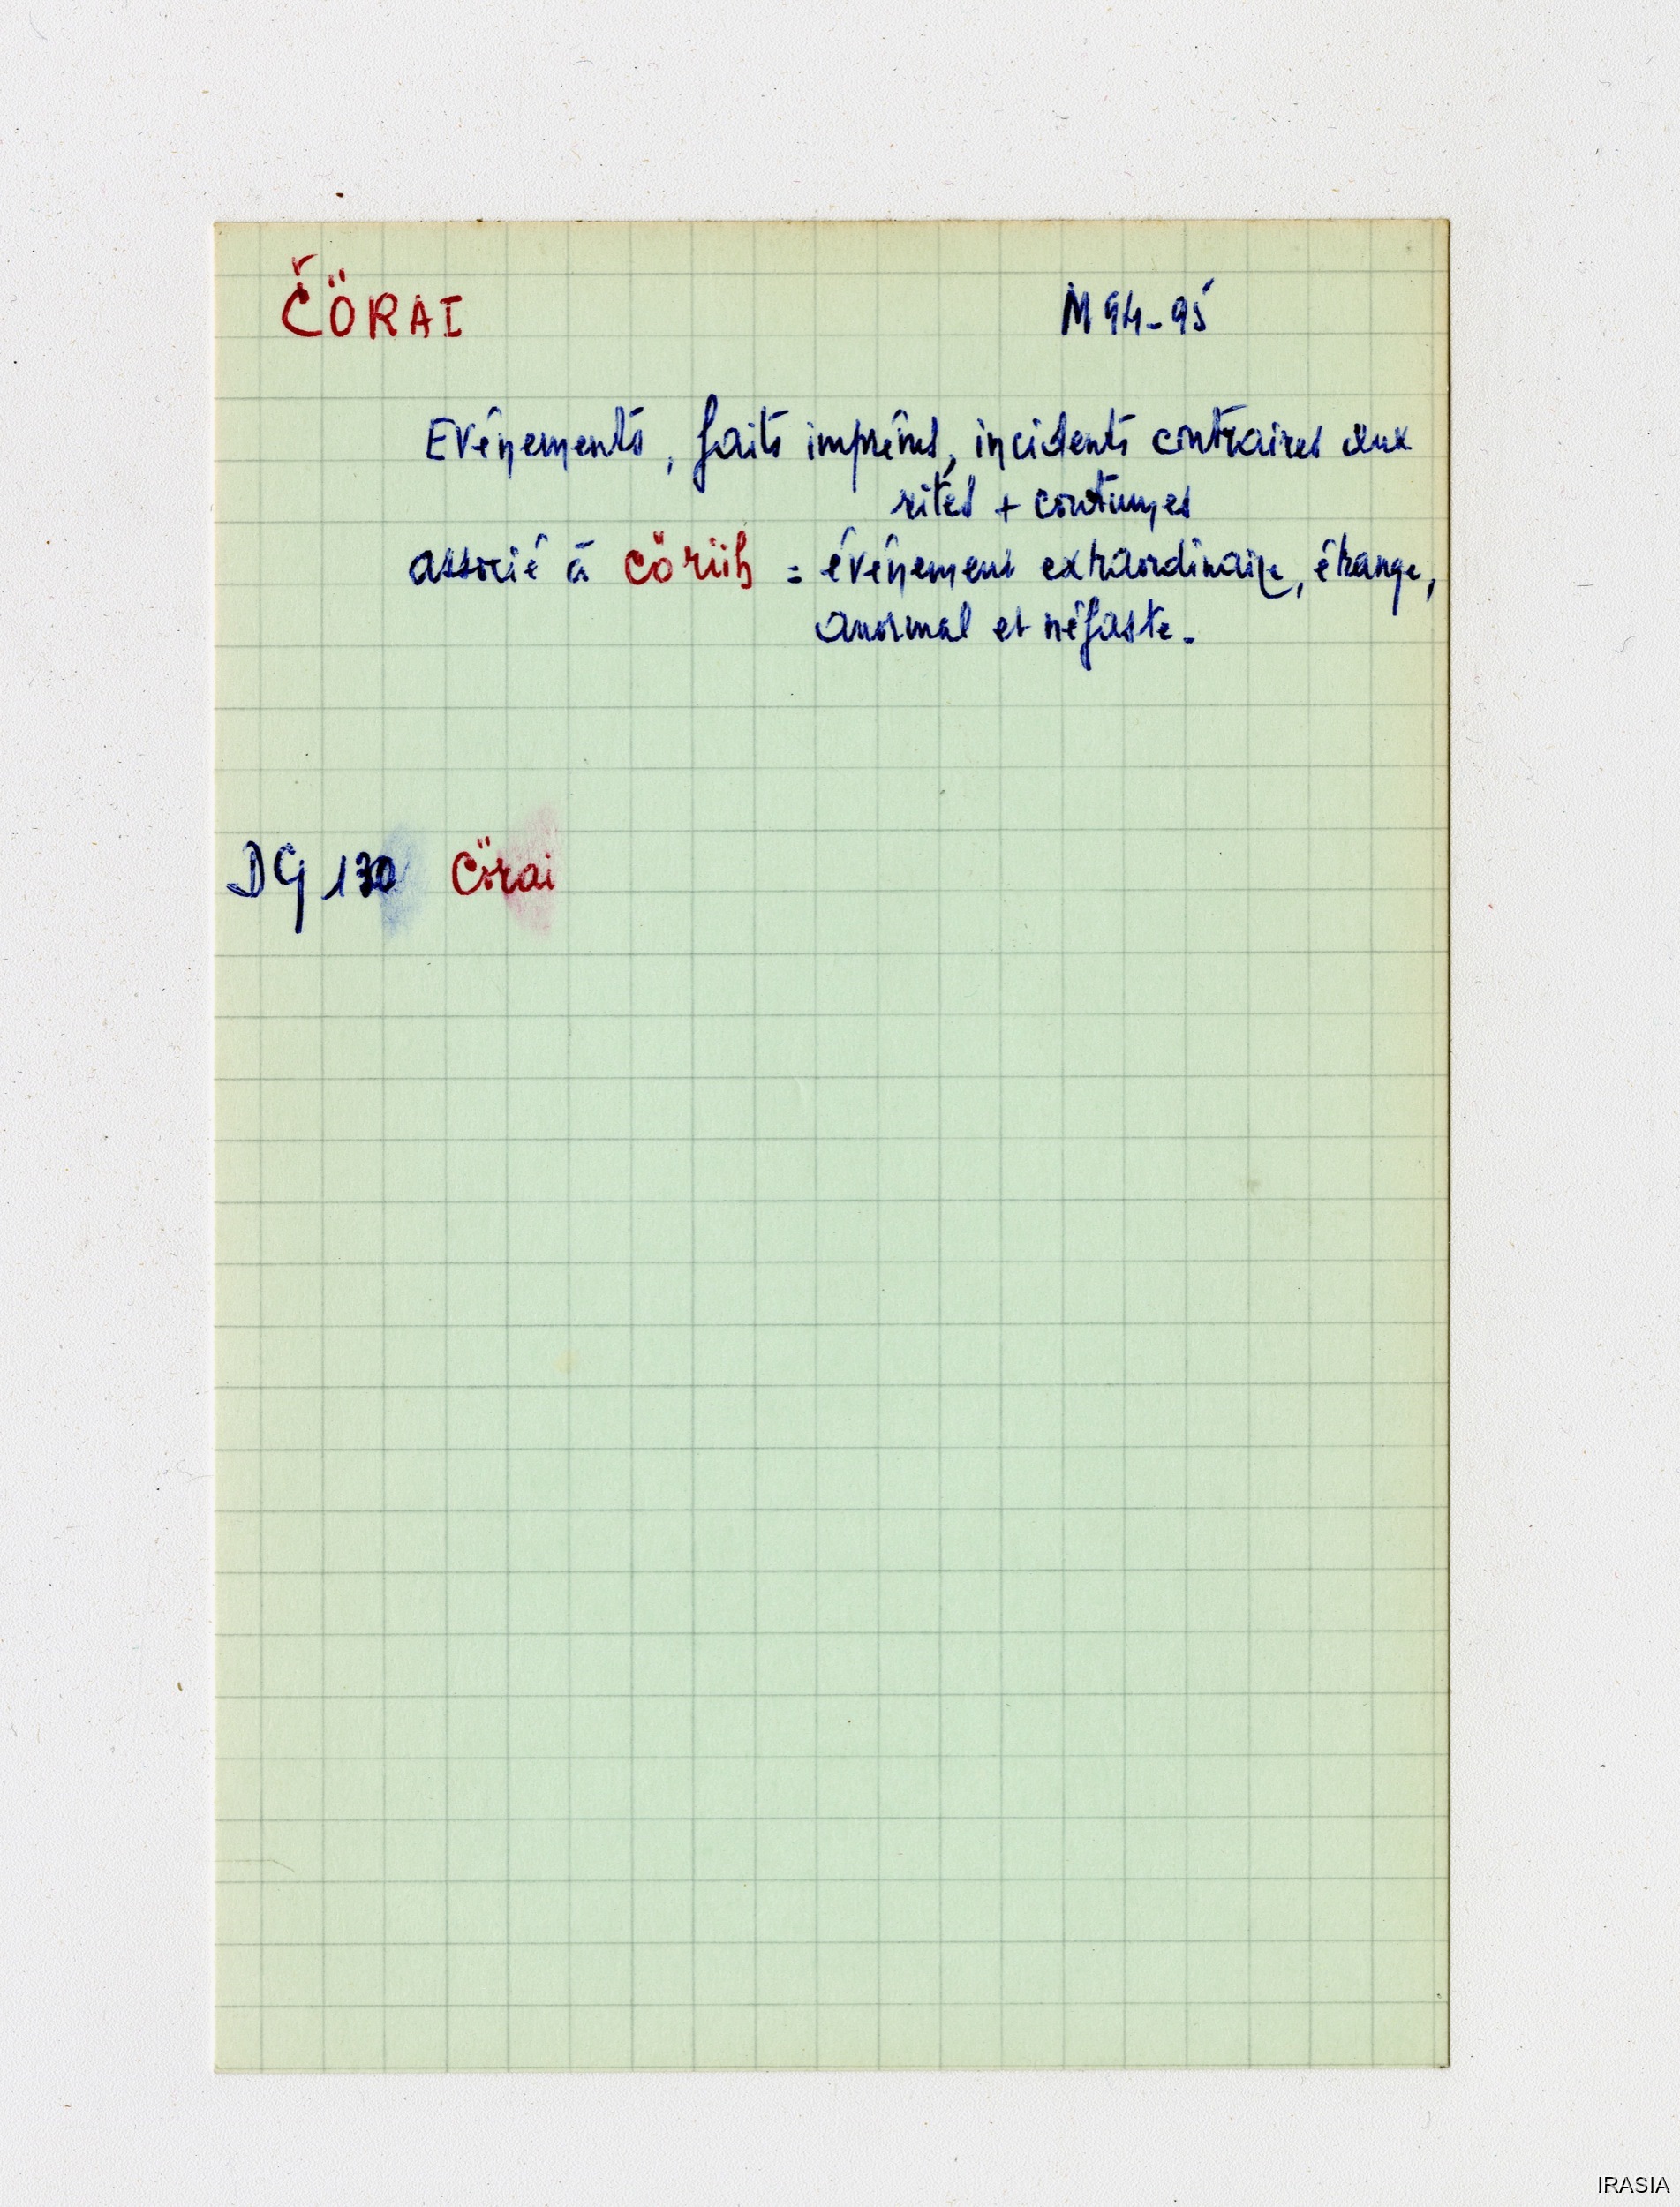 ČÖRAI M 94-95
Evénements, faits imprévus, incidents contraires aux
rites + coutumes
associé à cöriih = événement extraordinaire, étrange,
anormal et néfaste.
DG 130 Cörai
IRASIA